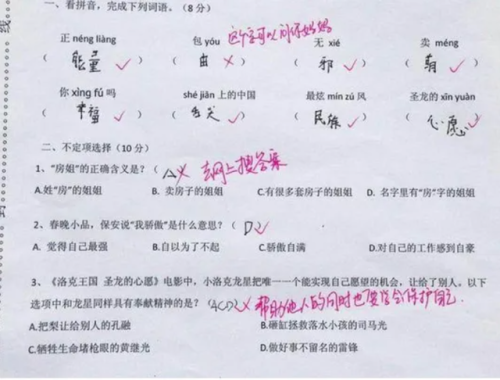 一、看拼音，完成下列词语。(8分)
正 néng liàng 包 yóu 这个字可以问你妈妈 无 xié 卖 méng
( 能量 ✓ ) ( 由 × ) ( 邪 ✓ ) ( 萌 ✓ )
你 xìng fú 吗 shé jiān 上的中国 最炫 mín zú 风 圣龙的 xīn yuàn
( 幸福 ✓ ) ( 舌尖 ✓ ) ( 民族 ✓ ) ( 心愿 ✓ )
二、不定项选择(10分)
1、“房姐”的正确含义是？( A × 去网上搜答案
A.姓“房”的姐姐 B. 卖房子的姐姐 C.有很多套房子的姐姐 D. 名字里有“房”字的姐姐
2、春晚小品，保安说“我骄傲”是什么意思？( D ✓
A. 觉得自己最强 B.自以为了不起 C.骄傲自满 D.对自己的工作感到自豪
3、《洛克王国 圣龙的心愿》电影中，小洛克龙星把唯一一个能实现自己愿望的机会，让给了别人。以下
选项中和龙星同样具有奉献精神的是？( ACD × 帮助他人的同时也要学会保护自己
A.把梨让给别人的孔融 B.砸缸拯救落水小孩的司马光
C.牺牲生命堵枪眼的黄继光 D.做好事不留名的雷锋